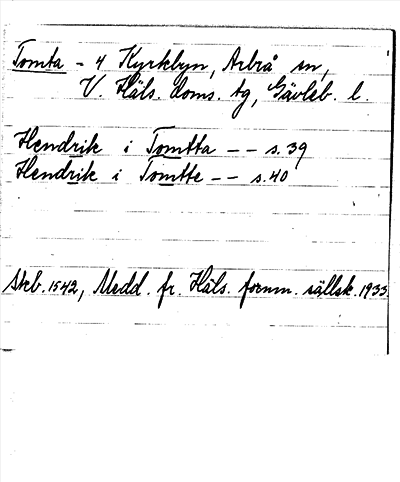 Tomta - 4 Kyrkbyn, Arbrå sn,
V. Häls. doms. tg, Gävleb. l.
Hendrik i Tomtta -- s. 39
Hendrik i Tomtte -- s. 40
Skb. 1542, Medd. fr. Häls. fornm. sällsk. 1933